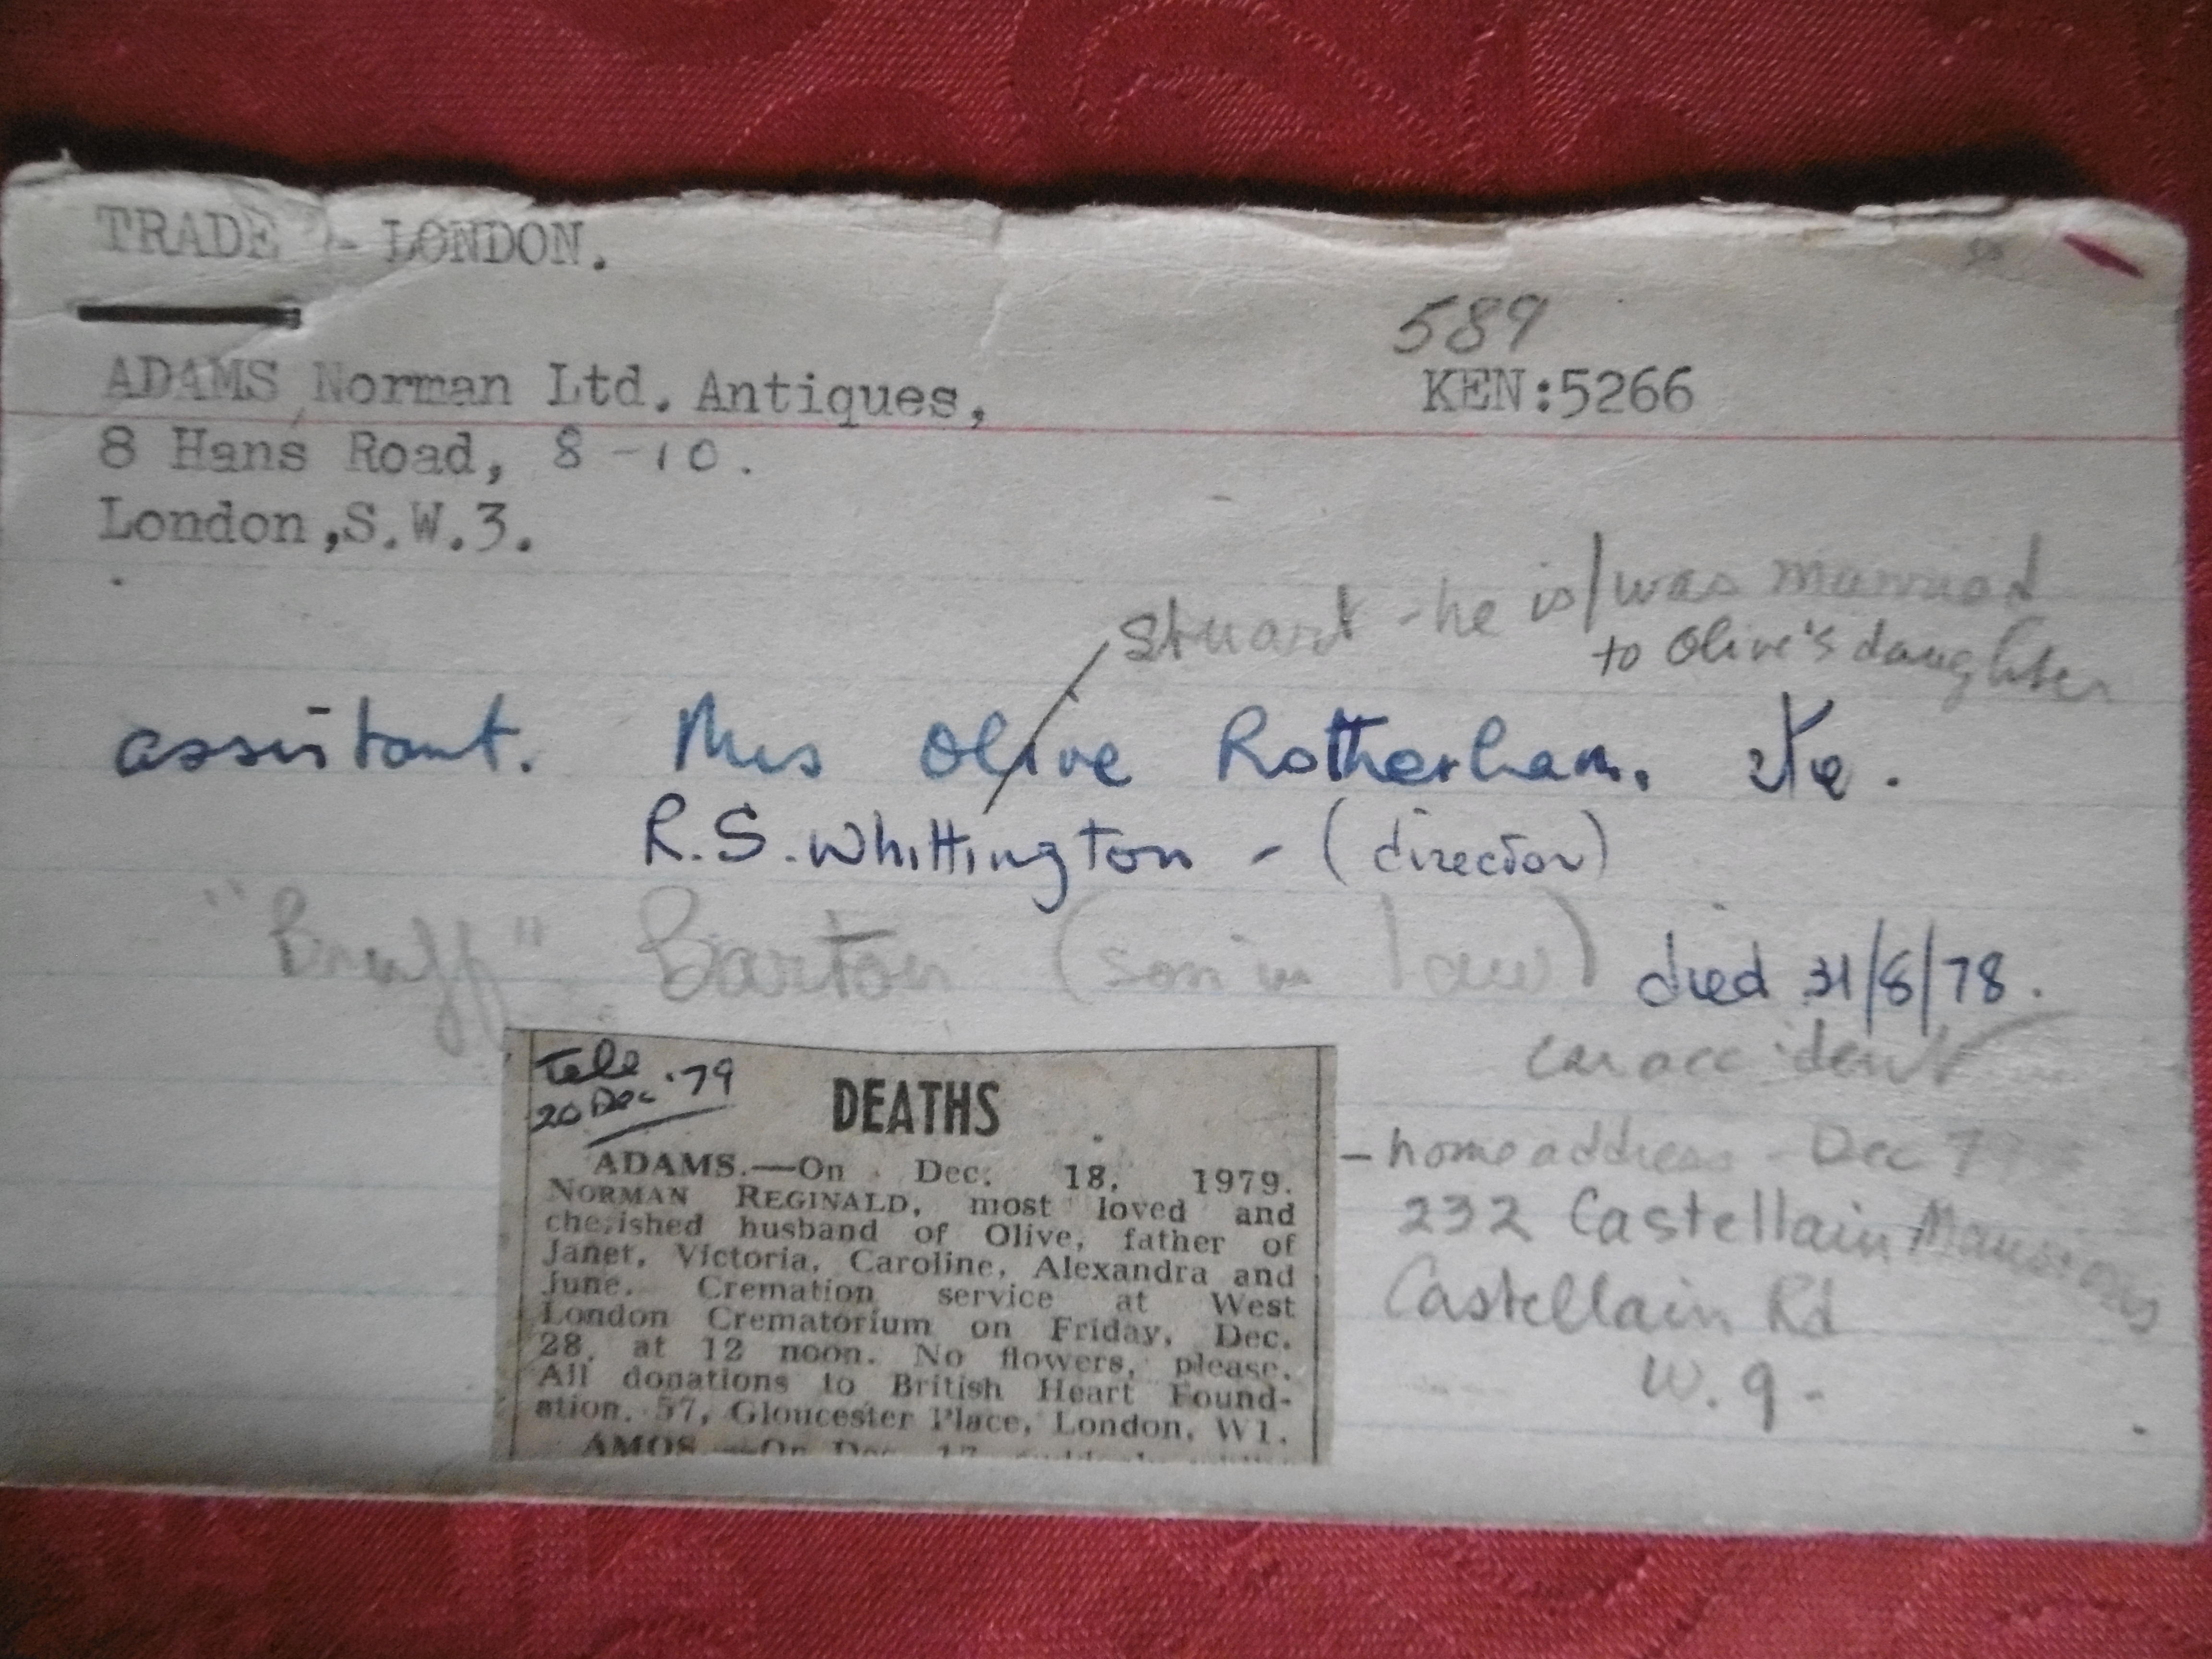 TRADE - LONDON.
589
ADAMS Norman Ltd. Antiques, KEN:5266
8 Hans Road, 8-10.
London,S.W.3.
Stuart - he is/was married
to Olive's daughter
assistant. Mrs Olive Rotherham.
R.S. Whittington - (director)
" Barton (son in law) died 31/8/78.
car accident
Tele
20 Dec '79
DEATHS
ADAMS.—On Dec. 18, 1979.
NORMAN REGINALD, most loved and
cherished husband of Olive, father of
Janet, Victoria, Caroline, Alexandra and
June. Cremation service at West
London Crematorium on Friday, Dec.
28, at 12 noon. No flowers, please.
All donations to British Heart Found-
ation, 57, Gloucester Place, London, W1.
AMOS.—On Dec. 17,
- home address - Dec
232 Castellain Mansions
Castellain Rd
W.9-